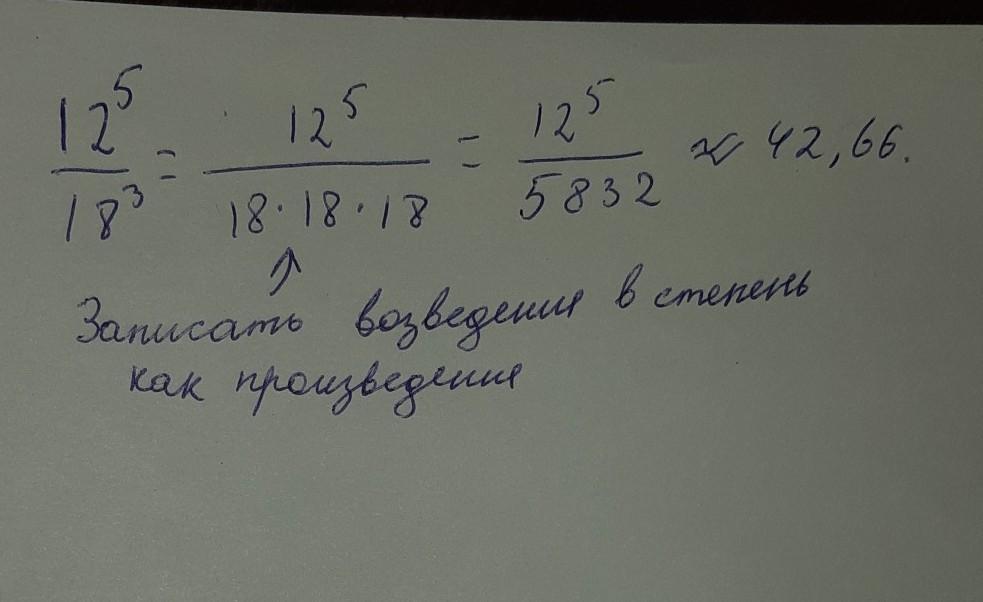 12⁵/18³ = 12⁵/(18·18·18) = 12⁵/5832 ≈ 42,66.
↑
Записать возведения в степень
как произведения